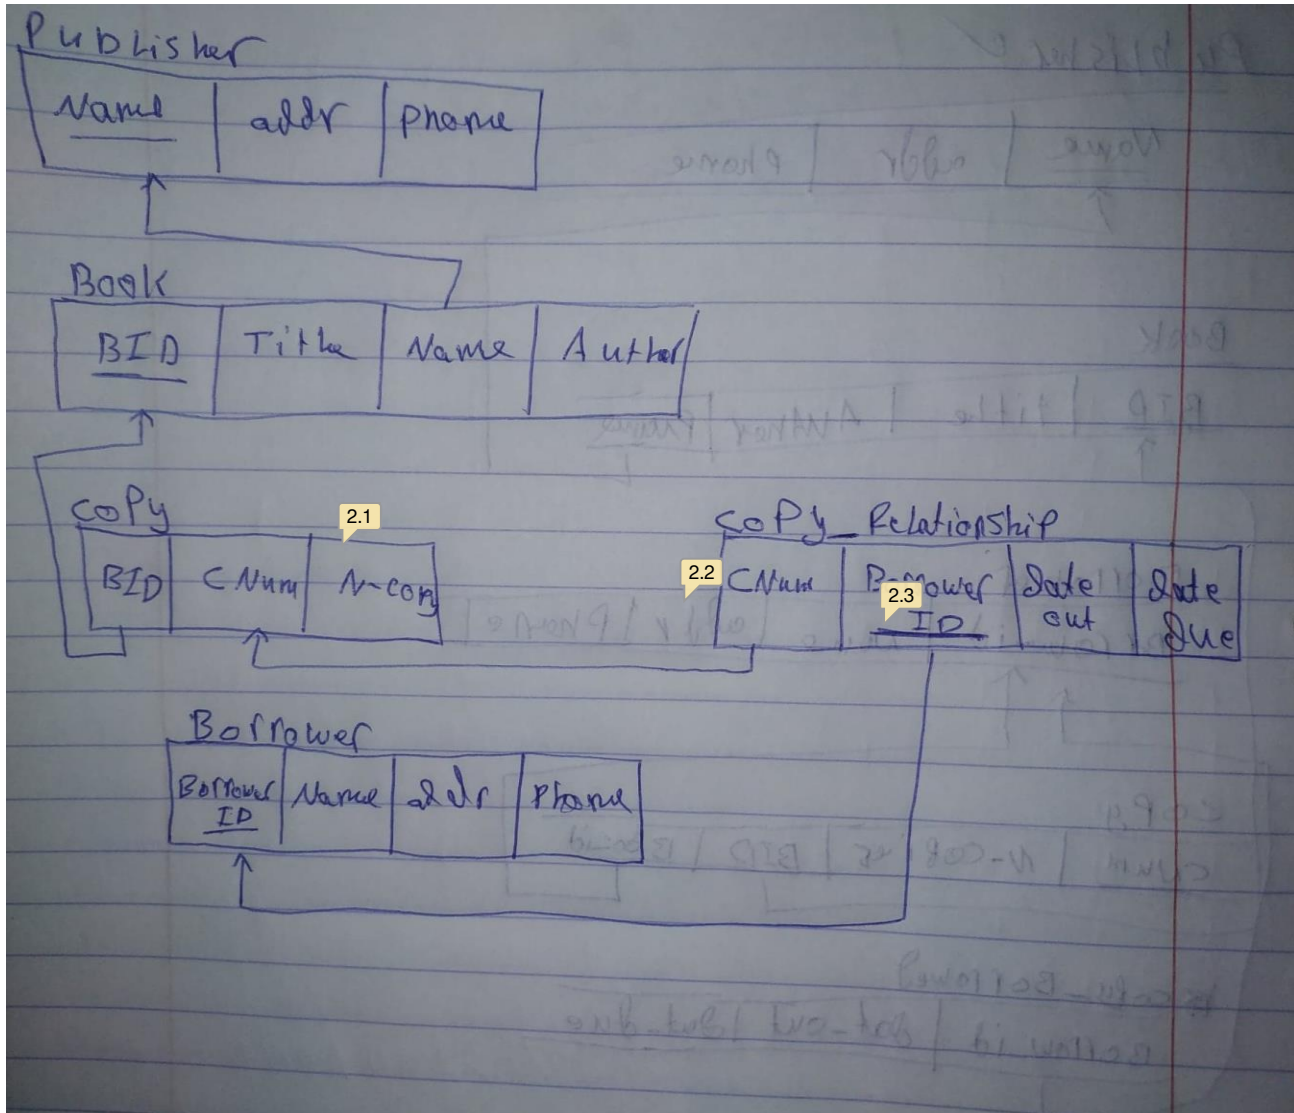 Publisher
Name addr phone
Book
BID Title Name Author
CoPy
2.1
BID CNum N-copy
CoPy_Relationship
2.2
CNum Borrower ID date out date due
2.3
Borrower
Borrower ID Name addr Phone